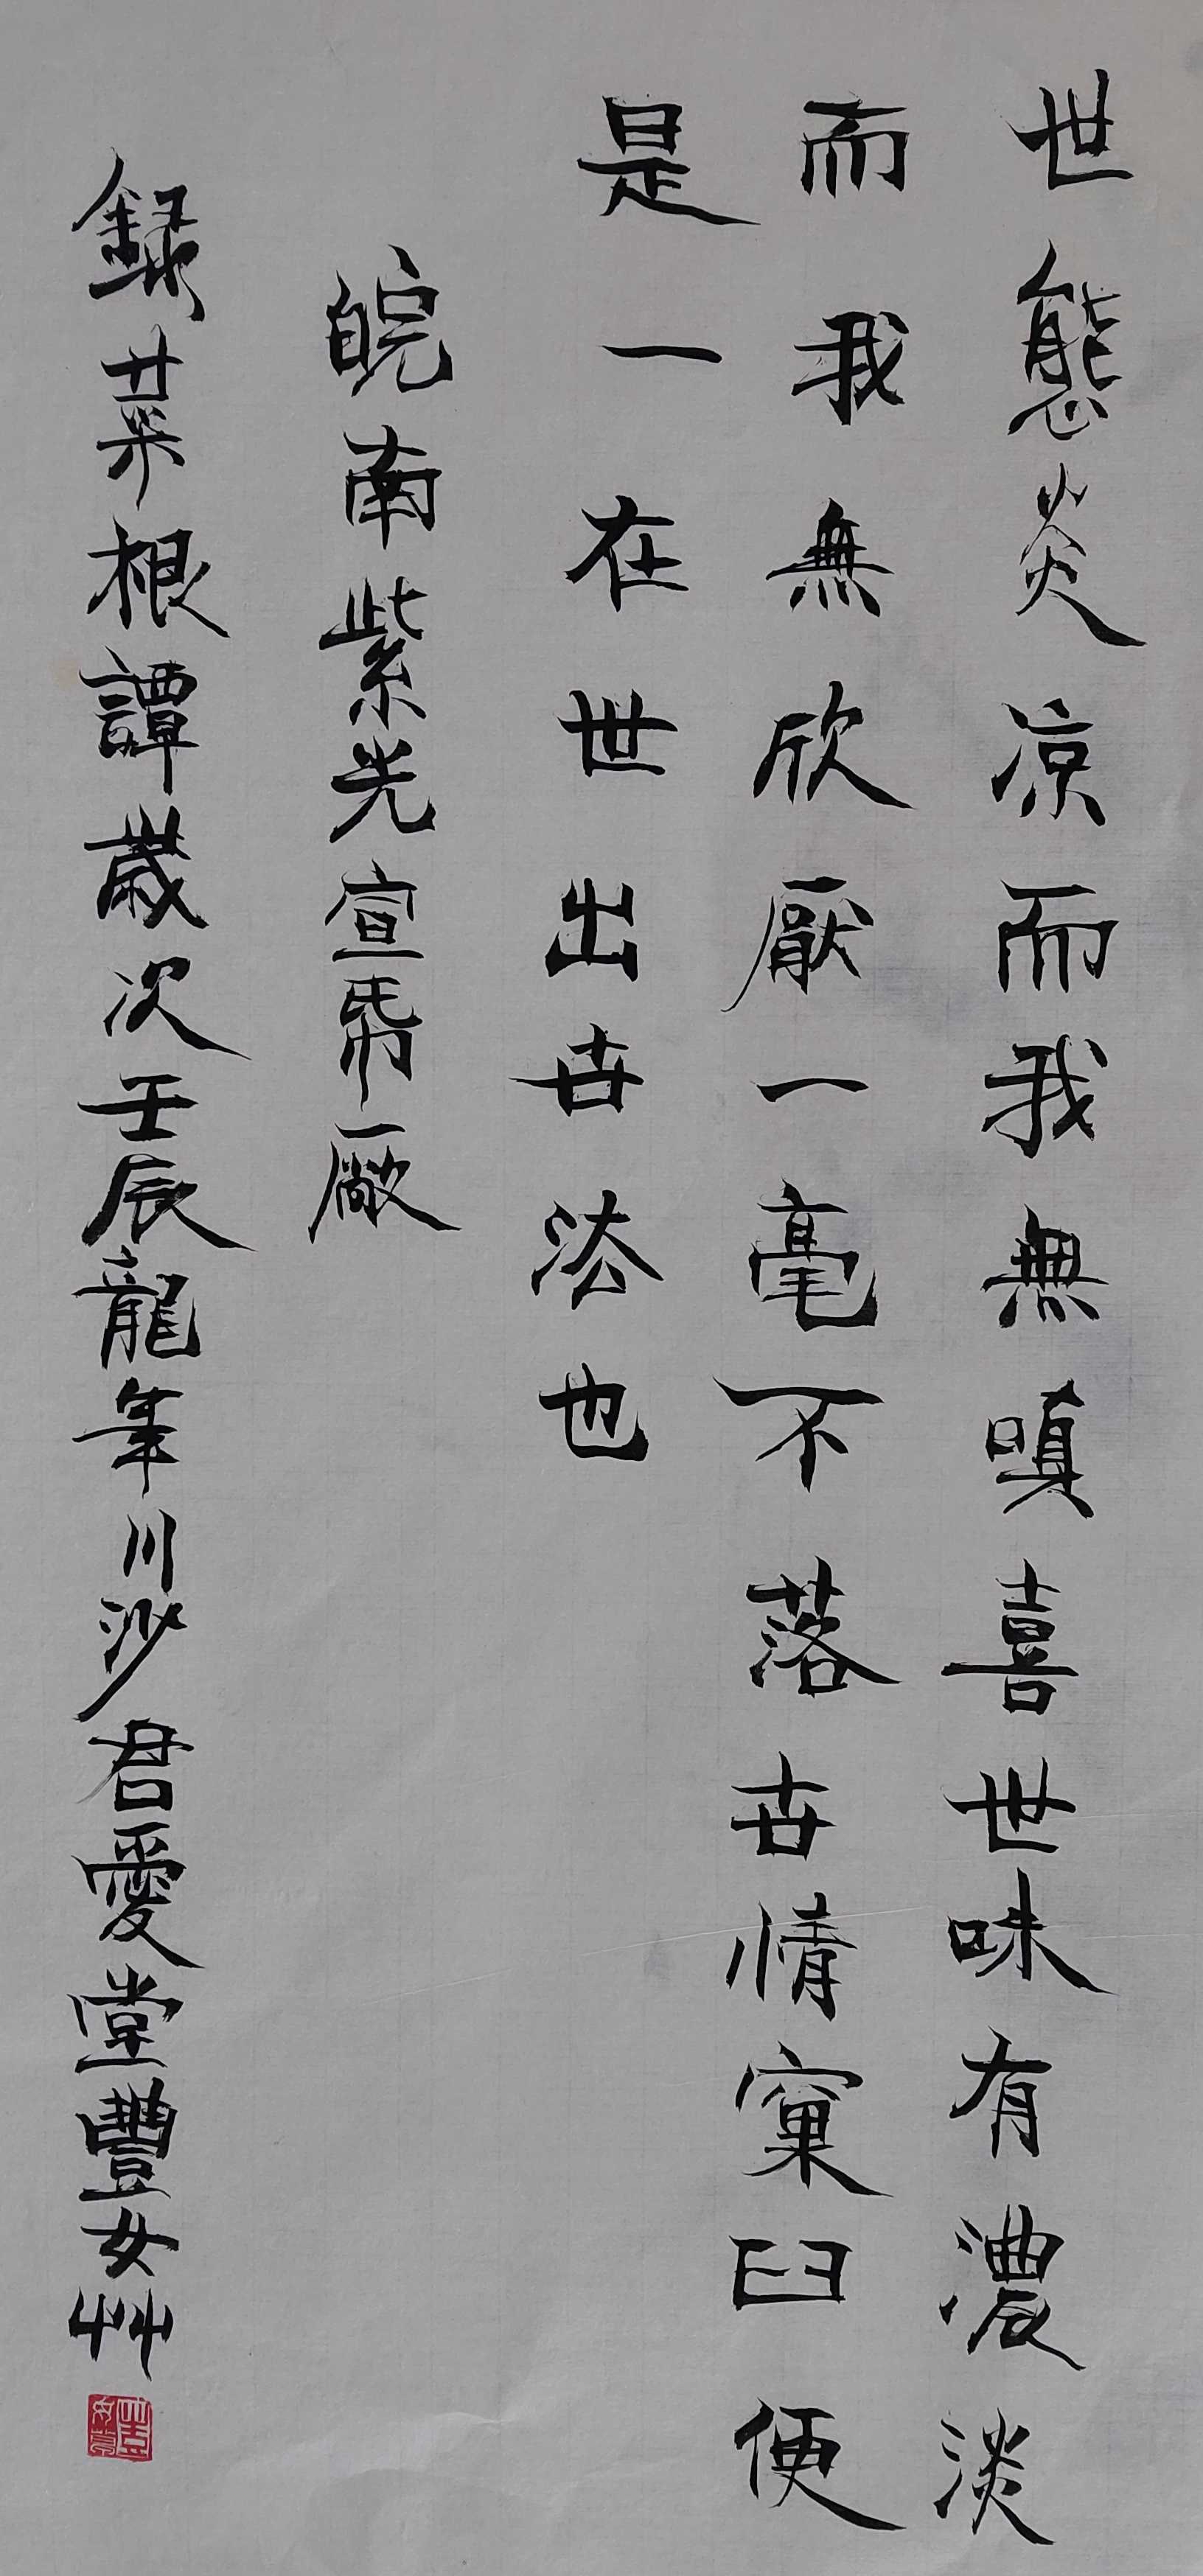 世態炎凉而我無嗔喜世味有濃淡
而我無欣厭一毫不落世情窠臼便
是一在世出世法也
皖南紫光宣帋厰
録菜根譚歲次壬辰龍年川沙君愛堂豐女艸